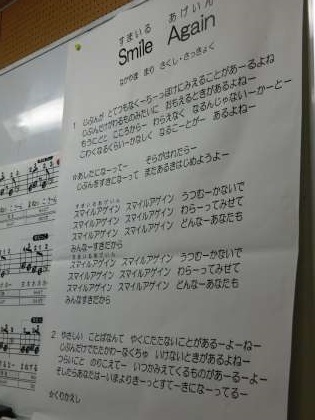 すまいる　あげいん
Smile Again
なかやま　まり　さくし・さっきょく
1　じぶんが　とてつもなくーちーっぽけにみえることがあーるよね
じぶんだけがわるものみたいに　おちえるときがあるよねー
もうにどと　こころからー　わらえなく　なるんじゃないーかーとー
こわくなるくらいーかなしく　なることがー　あるよねー
☆あしたになーってー　そらがはれたらー
じぶんをすきになーって　またあるきはじめようよー
すまいるあげいん
スマイルアゲイン　スマイルアゲイン　うつむーかないで
スマイルアゲイン　スマイルアゲイン　わらーってみせて
スマイルアゲイン　スマイルアゲイン　どんなーあなたも
みんなーすきだから
すまいるあげいん
スマイルアゲイン　スマイルアゲイン　うつむーかないで
スマイルアゲイン　スマイルアゲイン　わらーってみせて
スマイルアゲイン　スマイルアゲイン　どんなーあなたも
みんなすきだから
2　やさしい　ことばなんて　やくにたたないことがあーるーよーねー
じぶんだけでたたかわーなくちゃ　いけないときがあるよねー
つらいこと　のりこえてー　いつかみえてくるものがあーるーよー
そしたらあなたはーいまよりきーっとすてーきになーってるー
☆くりかえし